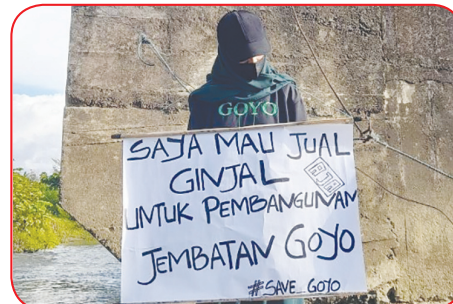 GOYO
SAYA MAU JUAL
GINJAL
UNTUK PEMBANGUNAN
JEMBATAN GOYO
#SAVE_GOYO